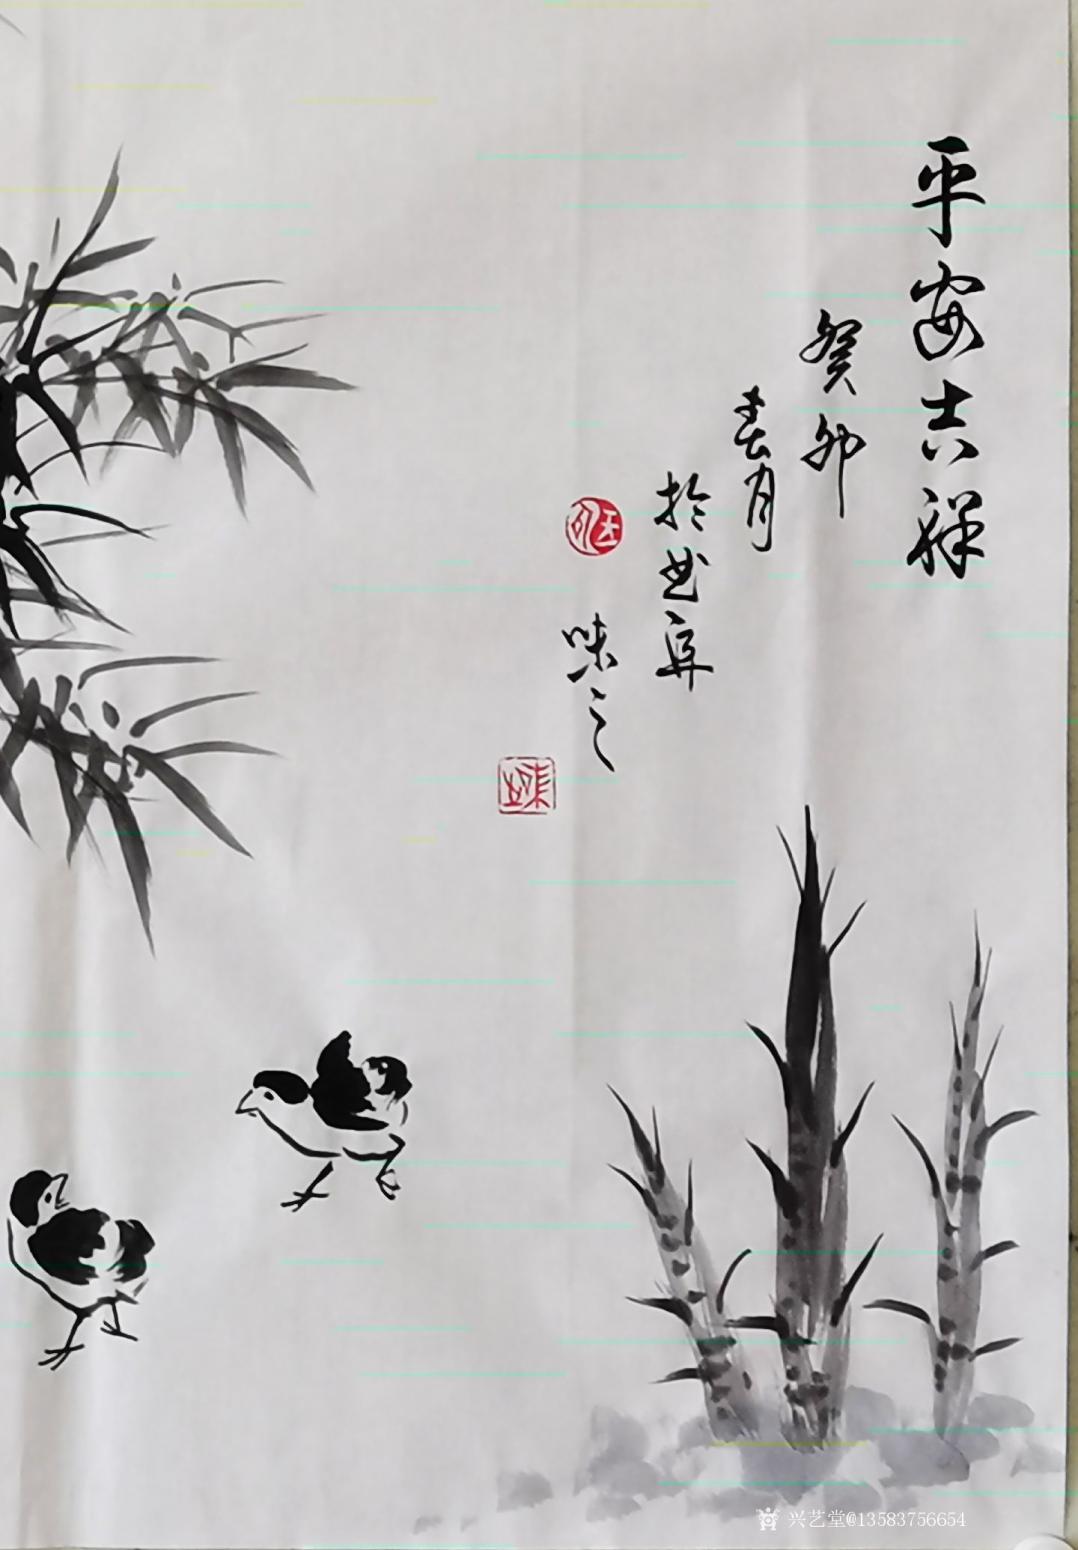 平安吉祥
癸卯
春月
于曲阜
味之
兴艺堂@13583756654